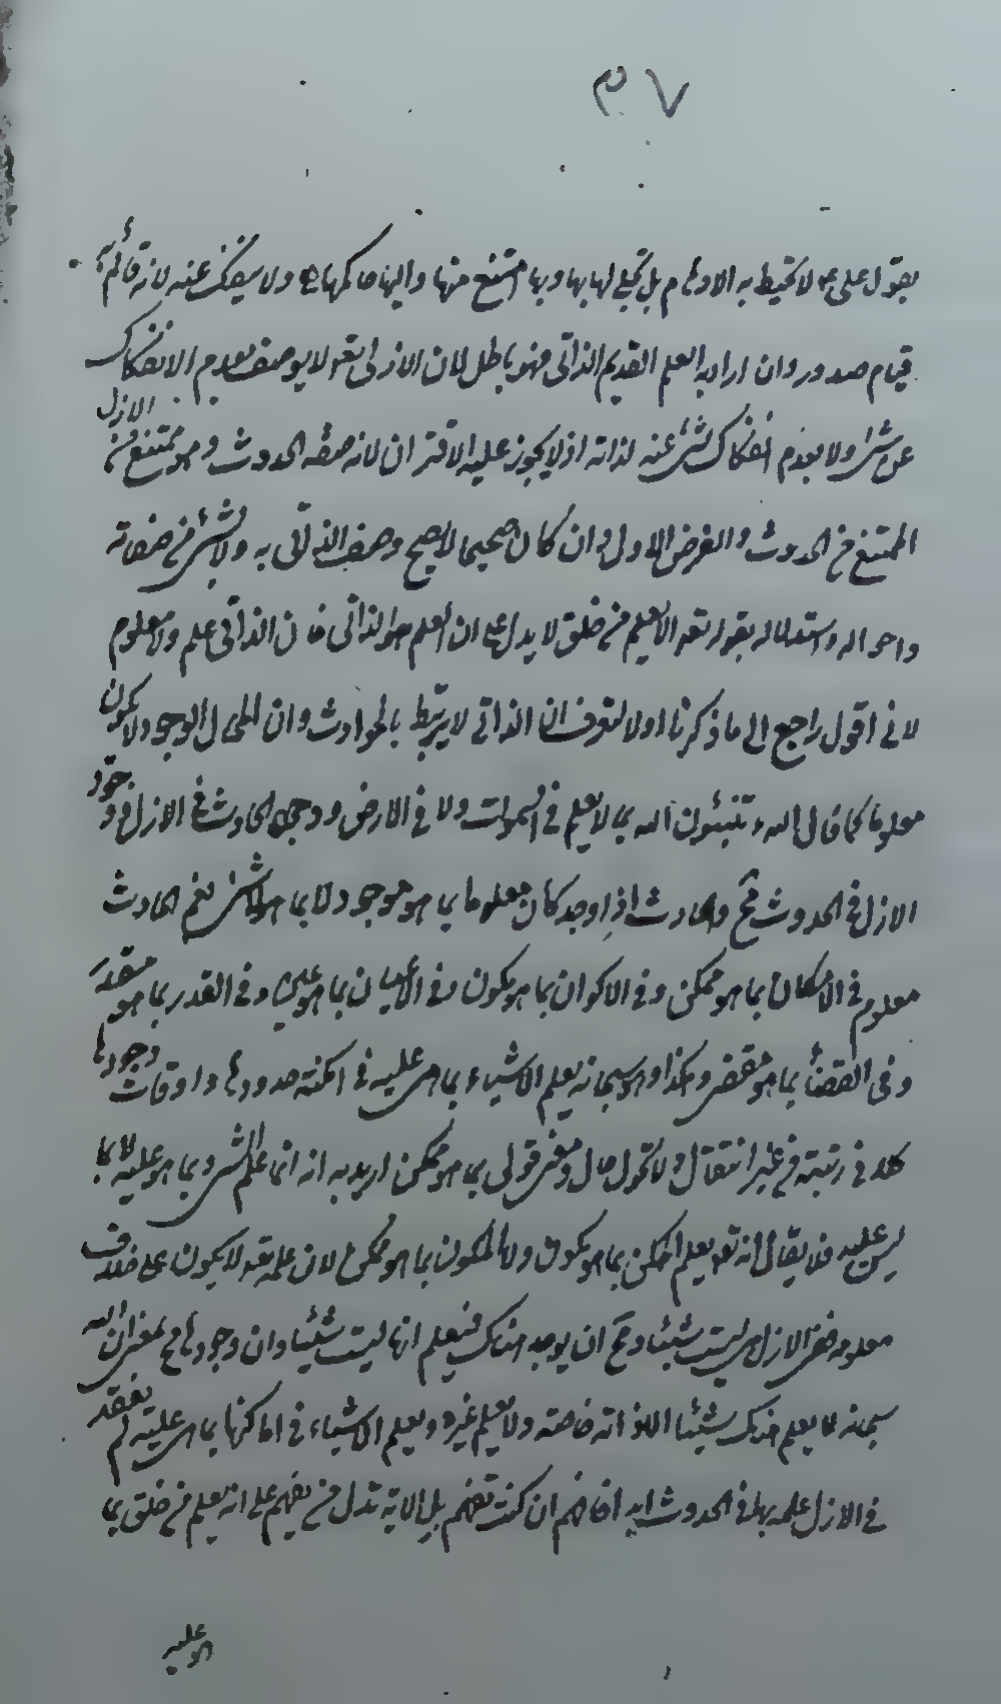 ٣٧
بقول علي ع لا تحيط به الاوهام بل تجلى لها بها وبها امتنع منها واليها حاكمها ولا ينفك عنه لانه قائم به
قيام صدور وان اراد به العلم القديم الذاتي فهو باطل لان الازلي تعه لا يوصف بعدم الانفكاك
عن شئ ولا بعدم انفكاك شئ عنه لذاته اذ لا يجوز عليه الاقتران لانه صفة الحدوث وهو ممتنع من الازل
الممتنع من الحدوث والفرض الاول وان كان صحيحا لا يصح وصف الذاتي به ولا شئ من صفاته
واحواله واستدلاله بقوله تعه الا يعلم من خلق لا يدل على ان العلم هو الذاتي فان الذاتي علم ولا معلوم
لاني اقول راجع الى ما ذكرنا اولا لتعرف ان الذاتي لا يرتبط بالحوادث وان المحال الوجود لا يكون
معلوما كما قال الله تنبئون الله بما لا يعلم في السموات ولا في الارض ووجود الحادث في الازل ووجود
الازل في الحدوث مح والحادث اذا وجد كان معلوما بما هو موجود لا بما هو لا شئ نعم الحادث
معلوم في الامكان بما هو ممكن وفي الاكوان بما هو يكون وفي الأعيان بما هو عين وفي القدر بما هو مقدر
وفي القضأ بما هو مقضي وهكذا وهو سبحانه يعلم الاشياء بما هي عليه في امكنة حدودها واوقات وجودها
كلا في رتبته من غير انتقال ولا تحول حال ومعنى قولي بما هو ممكن اريد به انه انما علم الشئ بما هو عليه لا بما
ليس عليه فلا يقال انه تعه يعلم الممكن بما هو مكون ولا المكون بما هو ممكن لان علمه تعه لا يكون على خلاف
معلومه ففي الازل هي ليست شيئا ومح ان يوجد هناك فيعلم انها ليست شيئا وان وجودها مح بمعنى ان الله
سبحانه لا يعلم هناك شيئا الا ذاته خاصة ولا يعلم غيره ويعلم الاشياء في اماكنها بما هي عليه لم يفقد
في الازل علمه بها في الحدوث ابدا فافهم ان كنت تفهم بل الاية تدل من يفهم على انه يعلم من خلق بما
هو عليه